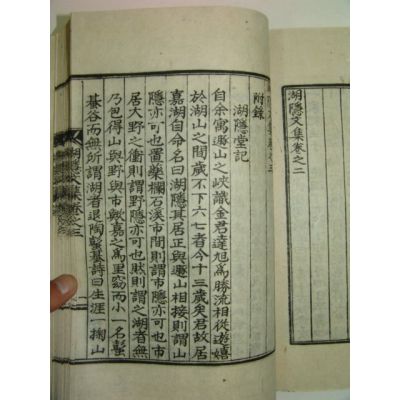 湖隱文集卷之二
附錄
湖隱堂記
自余寓遯山之峽識金君達旭爲勝流相從遊嬉
於湖山之間歲不下六七者今十三歲矣君故居
嘉湖自命名曰湖隱其居正與遯山相接則謂山
隱亦可也置藥欄石溪市間則謂市隱亦可也市
居大野之衝則謂野隱亦可也然則謂之湖者無
乃包得山與野與市歟嘉之爲里窈而小一名蟹
碁谷而無所謂湖者退陶蟹碁詩曰生涯一掬山
湖隱文集卷之三